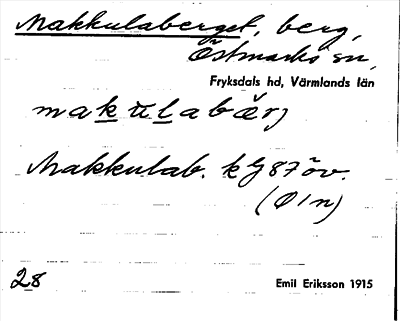 Makkulaberget, berg,
Östmarks sn,
Fryksdals hd, Värmlands län
Makkulab. klj 87 öv.
28
Emil Eriksson 1915